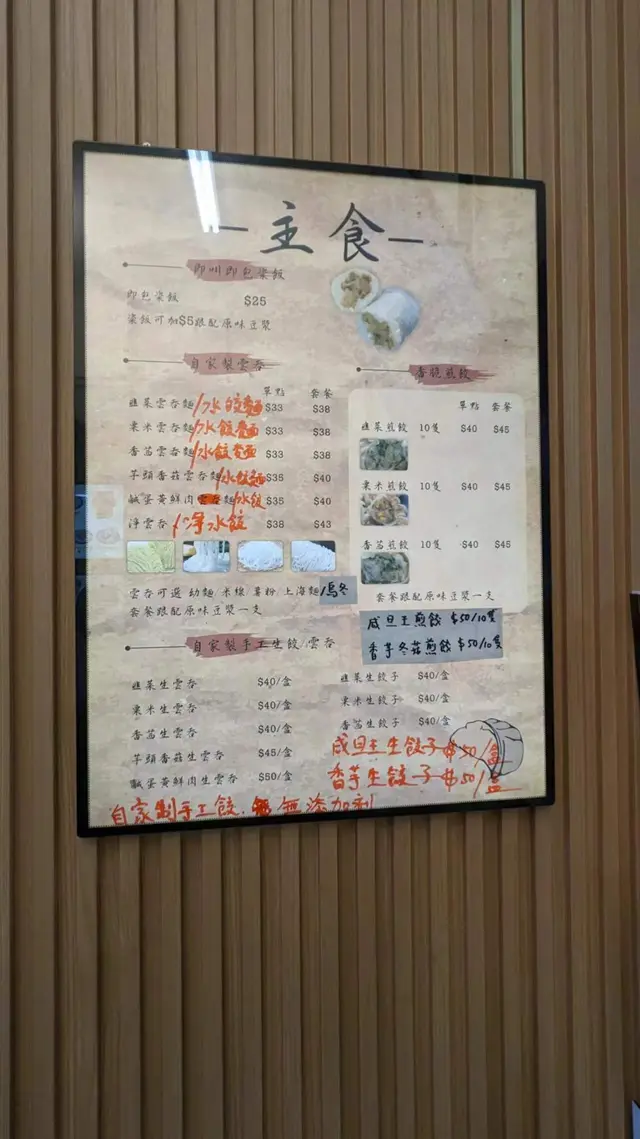 主食
即叫即包粢飯
即包粢飯 $25
粢飯可加$5跟配原味豆漿
自家製雲吞
單點 套餐
韮菜雲吞麵/水餃麵 $33 $38
粟米雲吞麵/水餃麵 $33 $38
香茜雲吞麵/水餃麵 $33 $38
芋頭香菇雲吞麵/水餃麵 $35 $40
鹹蛋黃鮮肉雲吞麵/水餃 $35 $40
淨雲吞/淨水餃 $38 $43
雲吞可選 幼麵 米線 薯粉 上海麵/烏冬
套餐跟配原味豆漿一支
香脆煎餃
單點 套餐
韮菜煎餃 10隻 $40 $45
粟米煎餃 10隻 $40 $45
香茜煎餃 10隻 $40 $45
套餐跟配原味豆漿一支
咸旦王煎餃 $50/10隻
香芋冬菇煎餃 $50/10隻
自家製手工生餃/雲吞
韮菜生雲吞 $40/盒
粟米生雲吞 $40/盒
香茜生雲吞 $40/盒
芋頭香菇生雲吞 $45/盒
鹹蛋黃鮮肉生雲吞 $50/盒
韮菜生餃子 $40/盒
粟米生餃子 $40/盒
香茜生餃子 $40/盒
咸旦王生餃子 $50/盒
香芋生餃子 $50/盒
自家制手工餃. 無添加剂